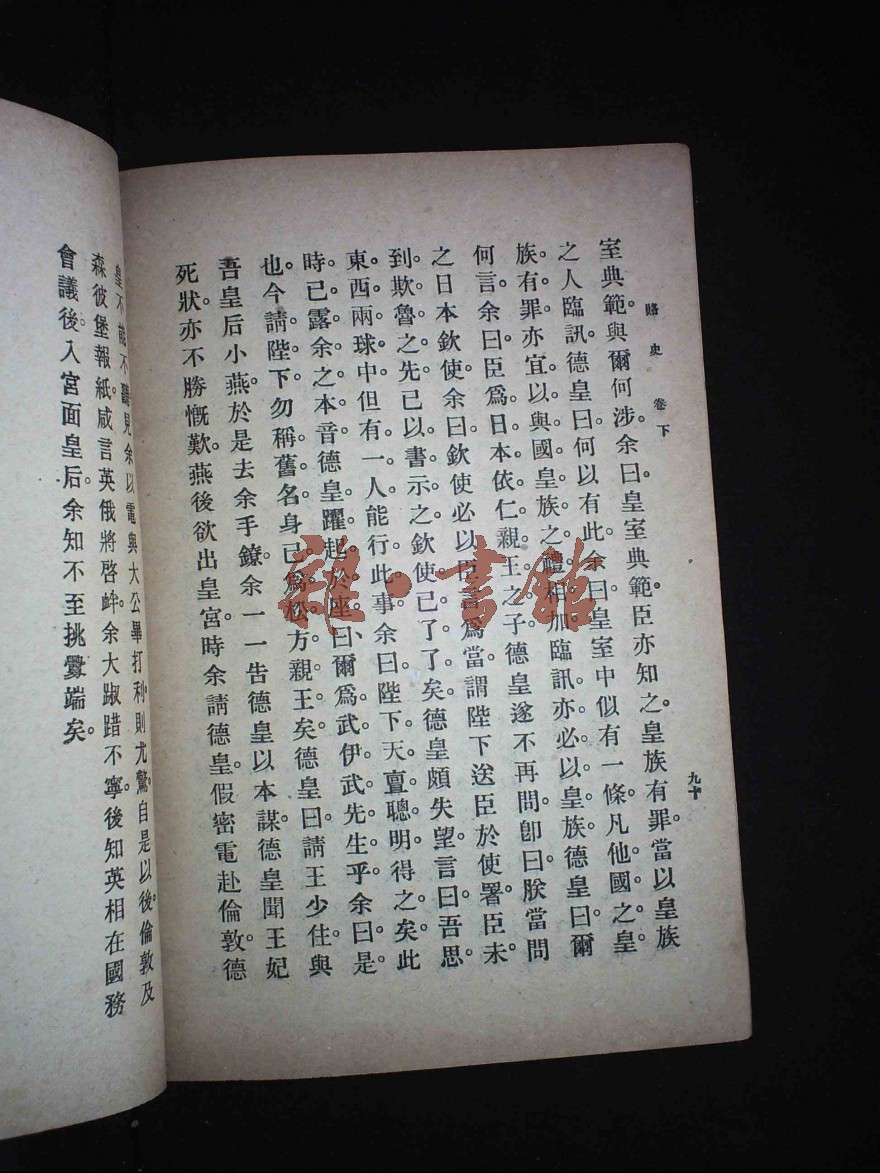 賂史 卷下
九十
室典範。與爾何涉。余曰。皇室典範。臣亦知之。皇族有罪。當以皇族
之人臨訊。德皇曰。何以有此。余曰。皇室中似有一條。凡他國之皇
族有罪。亦宜以與國皇族之禮相加。臨訊亦必以皇族。德皇曰。爾
何言。余曰。臣爲日本依仁親王之子。德皇遂不再問。卽曰。朕當問
之日本欽使。余曰。欽使必以臣言爲當。謂陛下送臣於使署。臣未
到欺魯之先。已以書示之。欽使已了了矣。德皇頗失望。言曰。吾思
東西兩球中。但有一人能行此事。余曰。陛下天亶聰明。得之矣。此
時已露余之本音。德皇躍起於座曰。爾爲武伊武先生乎。余曰。是
也。今請陛下勿稱舊名。身已爲松方親王矣。德皇曰。請王少住。與
吾皇后小燕。於是去余手鐐。余一一告德皇以本謀。德皇聞王妃
死狀。亦不勝慨歎。燕後欲出皇宮時。余請德皇假密電赴倫敦。德
皇不能不聽。見余以電與大公畢打利。則尤驚。自是以後。倫敦及
森彼堡報紙。咸言英俄將啓衅。余大踧踖不寧。後知英相在國務
會議後。入宮面皇后。余知不至挑釁端矣。
雜·書館